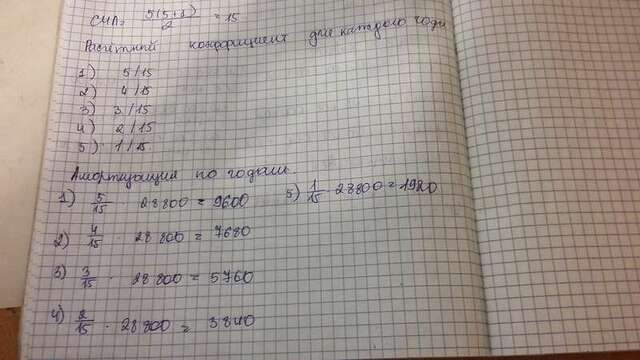 СЧЛ = 5(5+1)/2 = 15
Расчётный коэффициент для каждого года
1) 5/15
2) 4/15
3) 3/15
4) 2/15
5) 1/15
Амортизация по годам.
1) 5/15 · 28800 = 9600
2) 4/15 · 28800 = 7680
3) 3/15 · 28800 = 5760
4) 2/15 · 28800 = 3840
5) 1/15 · 28800 = 1920